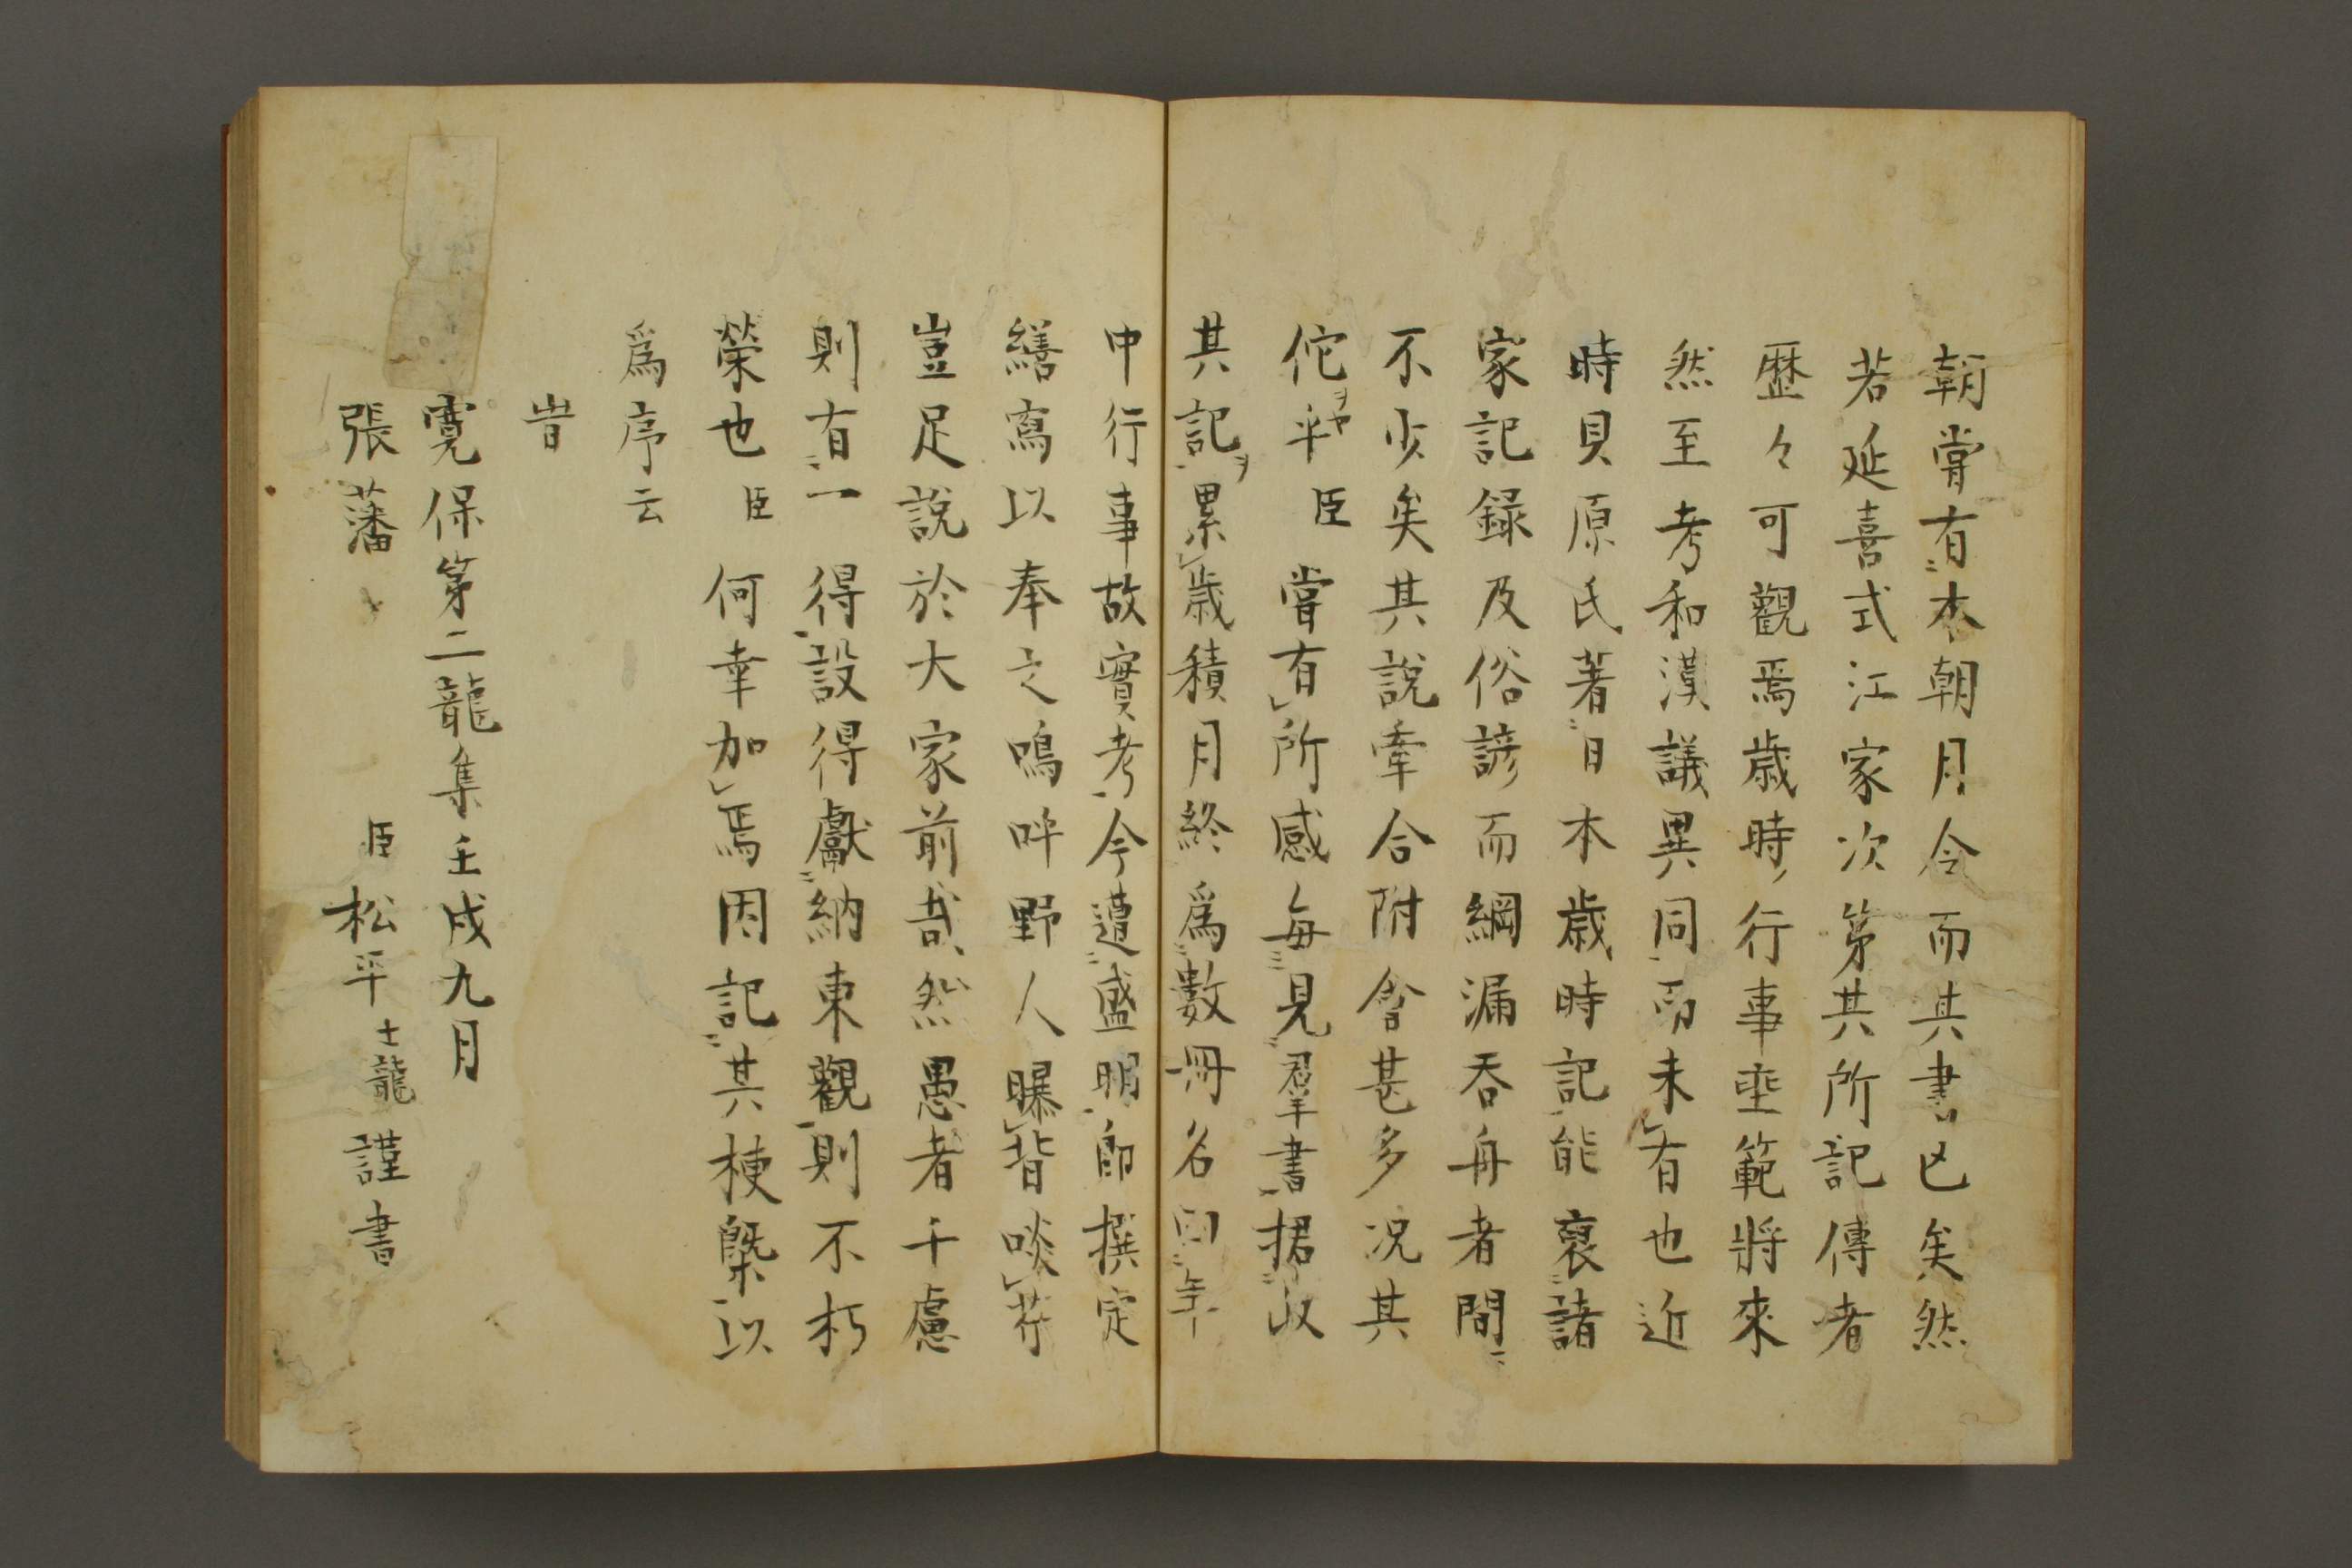 朝嘗有本朝月令而其書已矣然
若延喜式江家次第其所記傳者
歴々可觀焉歳時行事垂範將來
然至考和漢議異同而未有也近
時貝原氏著日本歳時記能裒諸
家記録及俗諺而綱漏呑舟者間
不少矣其説牽合附會甚多况其
佗乎臣嘗有所感毎見羣書捃收
其記累歳積月終爲數冊名曰年
中行事故實考今遭盛明即撰定
繕寫以奉之嗚呼野人曝背啖芹
豈足說於大家前哉然愚者千慮
則有一得設得獻納東觀則不朽
榮也臣何幸加焉因記其梗槩以
爲序云
旹
寛保第二龍集壬戌九月
張藩 臣松平士龍謹書